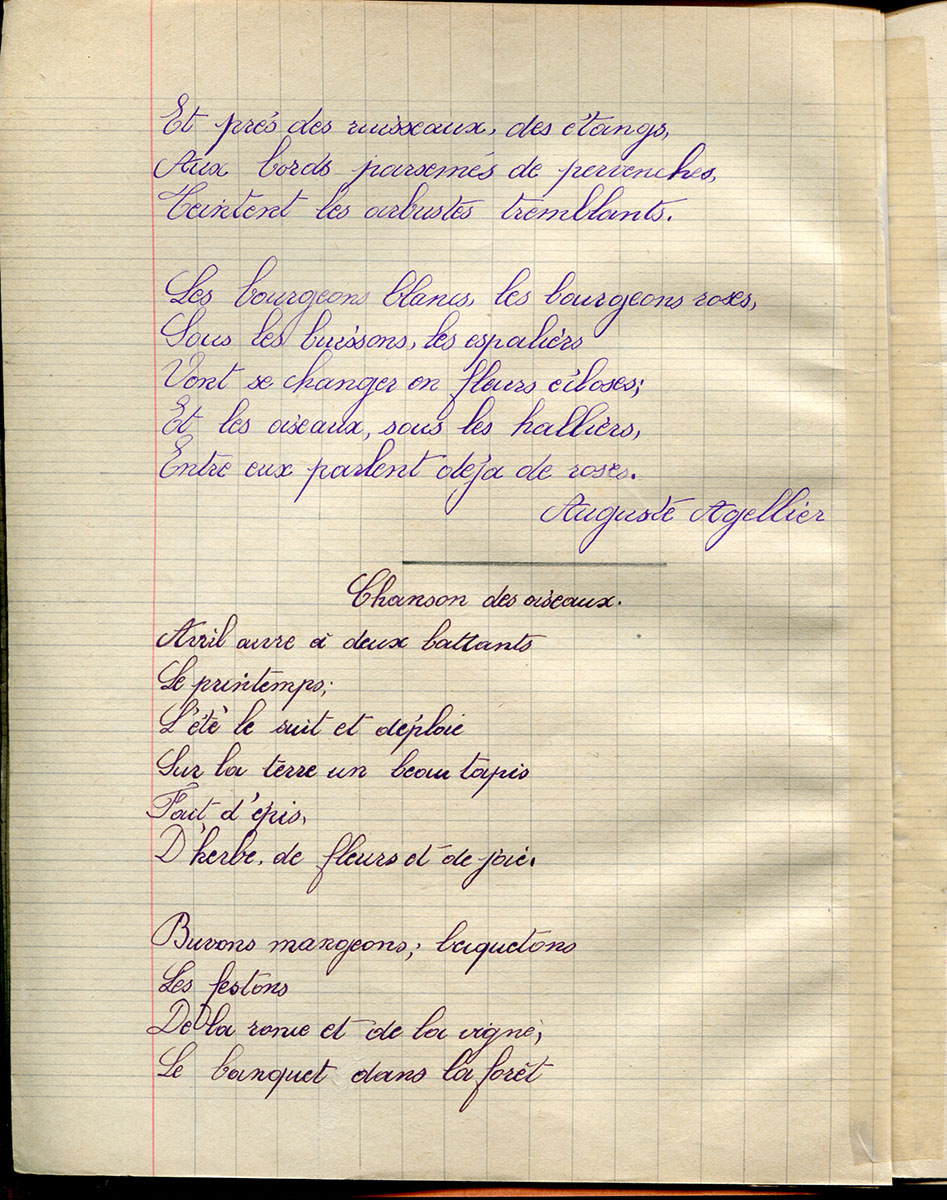 Et près des ruisseaux, des étangs,
Aux bords parsemés de pervenches,
Teintent les arbustes tremblants.
Les bourgeons blancs, les bourgeons roses,
Sous les buissons, les espaliers
Vont se changer en fleurs écloses;
Et les oiseaux, sous les halliers,
Entre eux parlent déja de roses.
Auguste Agellier
Chanson des oiseaux.
Avril ouvre à deux battants
Le printemps;
L'été le suit et déploie
Sur la terre un beau tapis
Fait d'épis,
D'herbe, de fleurs et de joie.
Buvons mangeons; becquetons
Les festons
De la ronce et de la vigne;
Le banquet dans la forêt